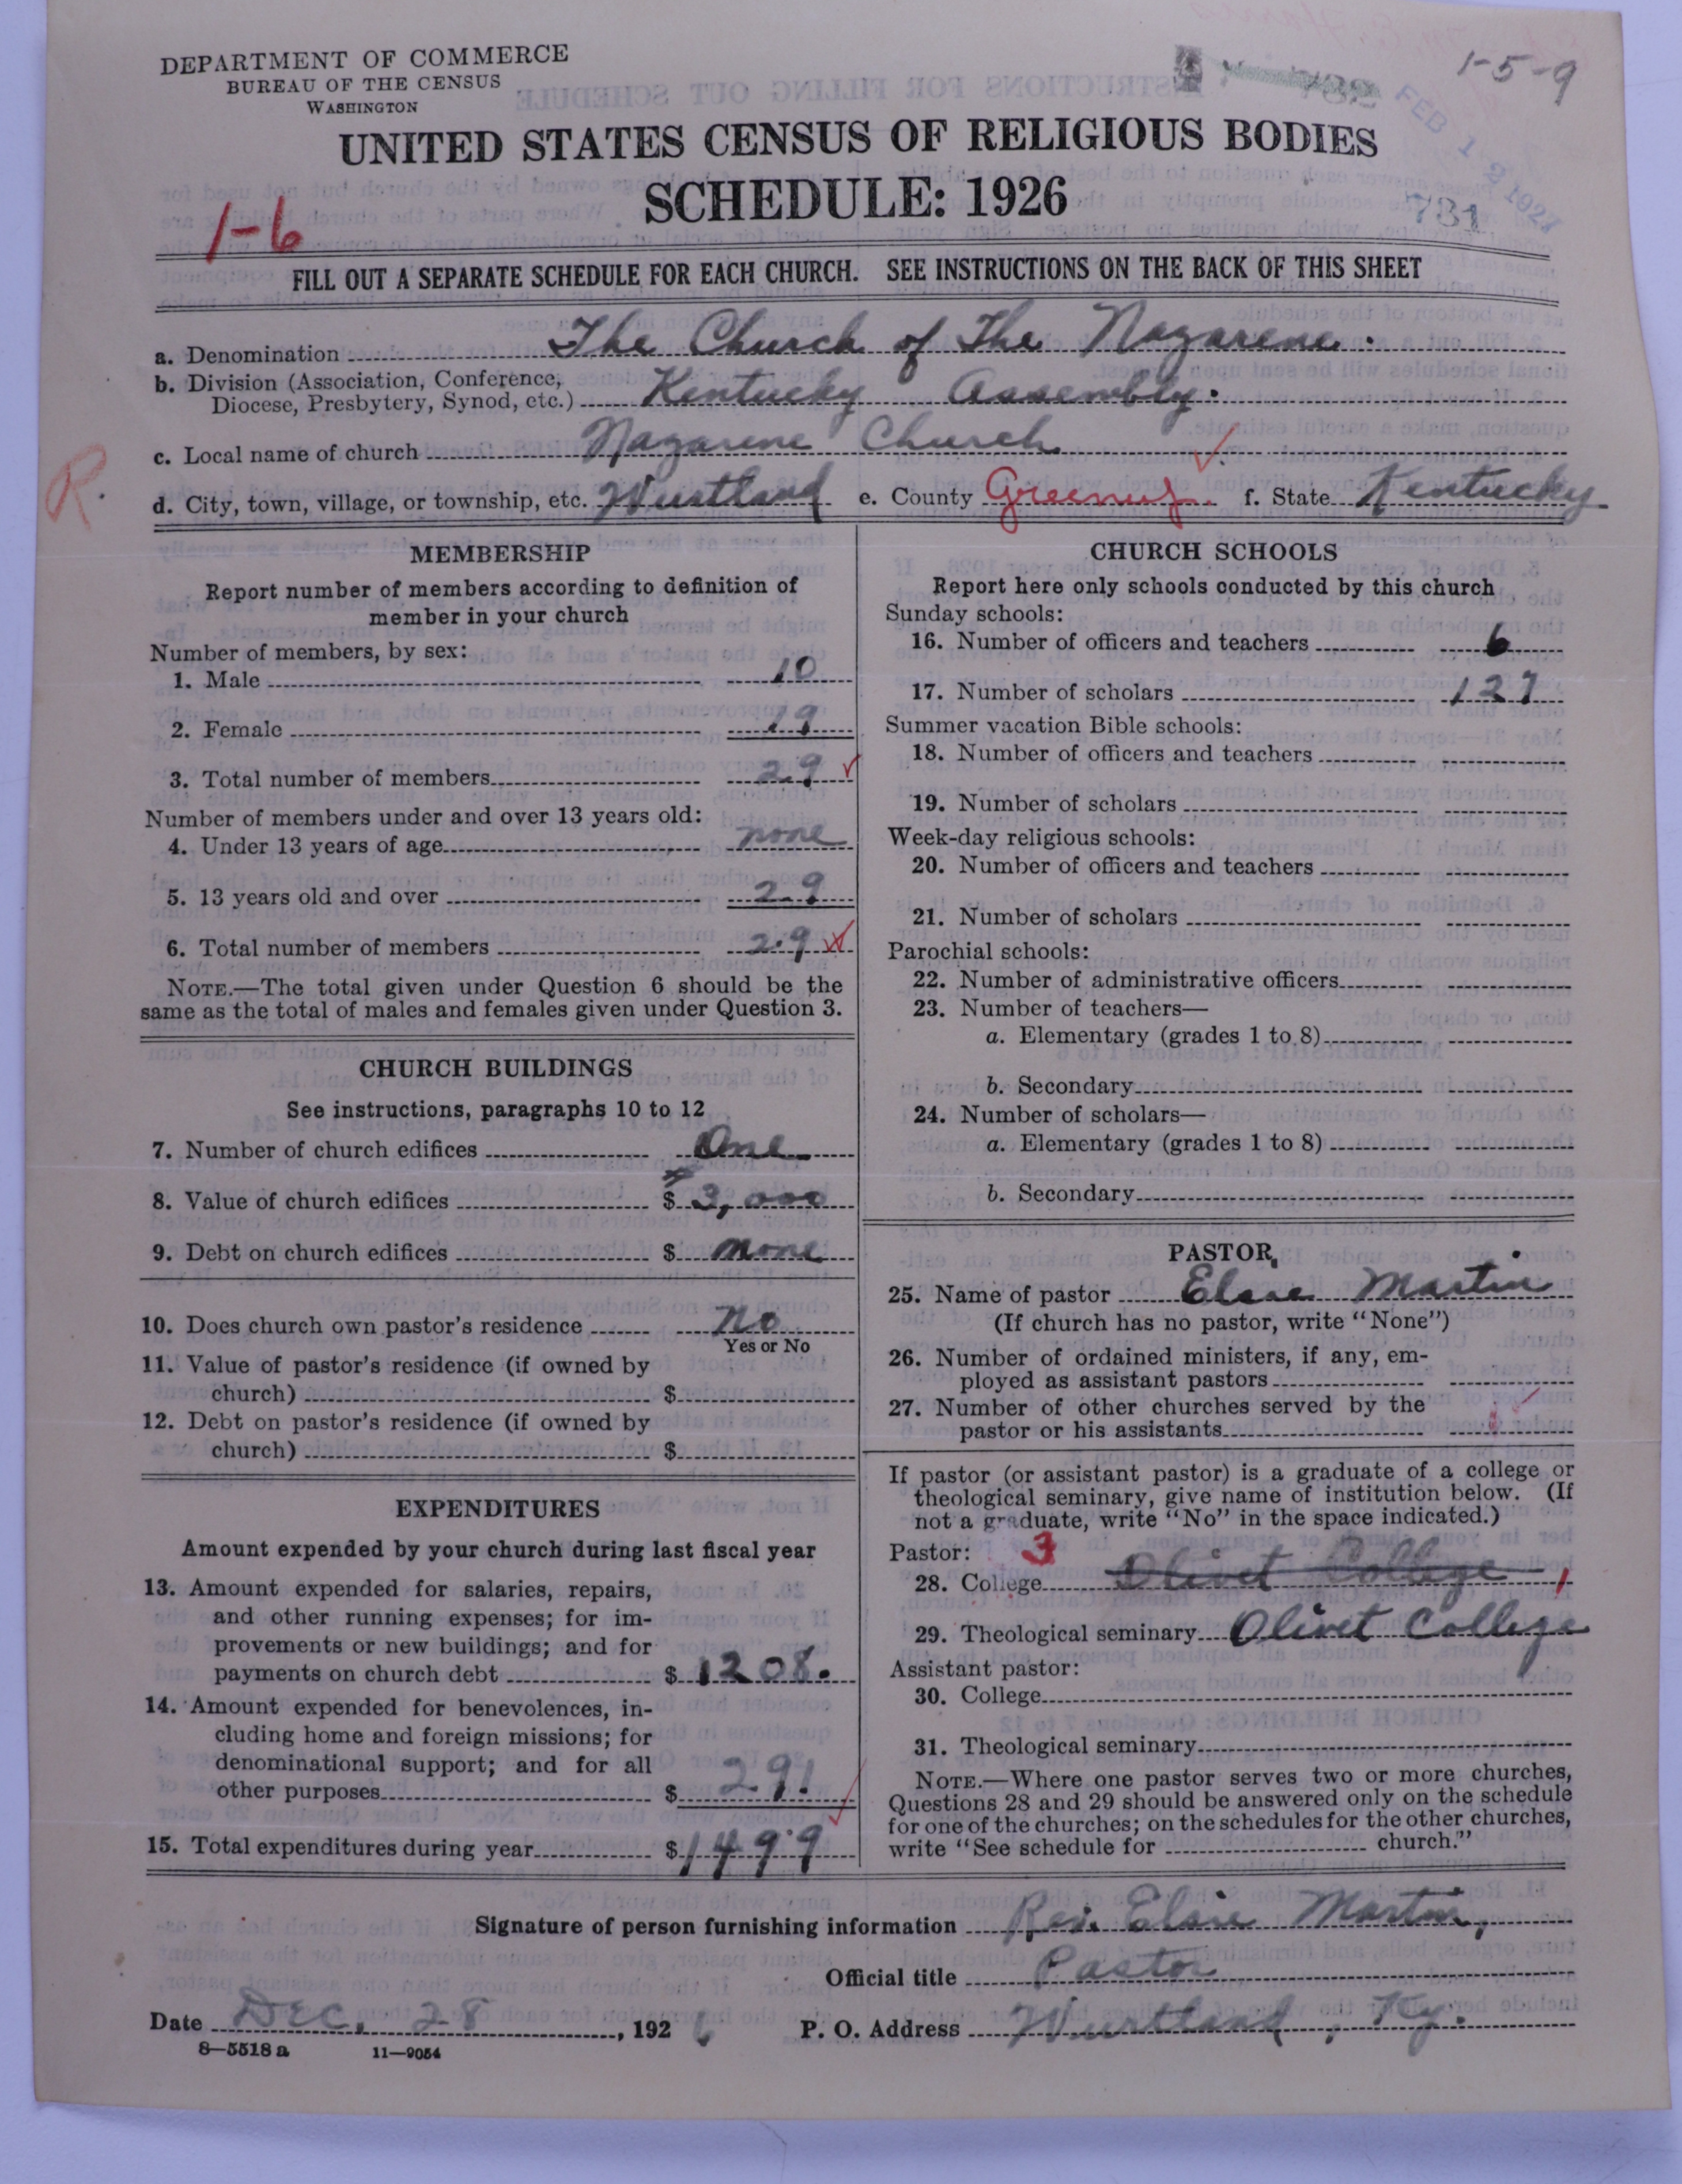 DEPARTMENT OF COMMERCE
BUREAU OF THE CENSUS
WASHINGTON
1-5-9
732
FEB 12 1927
UNITED STATES CENSUS OF RELIGIOUS BODIES
SCHEDULE: 1926
731
1-6
FILL OUT A SEPARATE SCHEDULE FOR EACH CHURCH. SEE INSTRUCTIONS ON THE BACK OF THIS SHEET
a. Denomination The Church of The Nazarene.
b. Division (Association, Conference,
Diocese, Presbytery, Synod, etc.) Kentucky Assembly.
c. Local name of church Nazarene Church
R.
d. City, town, village, or township, etc. Wurtland e. County Greenup f. State Kentucky
MEMBERSHIP
Report number of members according to definition of
member in your church
Number of members, by sex:
1. Male 10
2. Female 19
3. Total number of members 29
Number of members under and over 13 years old:
4. Under 13 years of age none
5. 13 years old and over 29
6. Total number of members 29
NOTE.—The total given under Question 6 should be the
same as the total of males and females given under Question 3.
CHURCH BUILDINGS
See instructions, paragraphs 10 to 12
7. Number of church edifices One
8. Value of church edifices $ 3,000
9. Debt on church edifices $ none
10. Does church own pastor's residence No
Yes or No
11. Value of pastor's residence (if owned by
church) $
12. Debt on pastor's residence (if owned by
church) $
EXPENDITURES
Amount expended by your church during last fiscal year
13. Amount expended for salaries, repairs,
and other running expenses; for im-
provements or new buildings; and for
payments on church debt $ 1208.
14. Amount expended for benevolences, in-
cluding home and foreign missions; for
denominational support; and for all
other purposes $ 291.
15. Total expenditures during year $ 1499
CHURCH SCHOOLS
Report here only schools conducted by this church
Sunday schools:
16. Number of officers and teachers 6
17. Number of scholars 127
Summer vacation Bible schools:
18. Number of officers and teachers
19. Number of scholars
Week-day religious schools:
20. Number of officers and teachers
21. Number of scholars
Parochial schools:
22. Number of administrative officers
23. Number of teachers—
a. Elementary (grades 1 to 8)
b. Secondary
24. Number of scholars—
a. Elementary (grades 1 to 8)
b. Secondary
PASTOR
25. Name of pastor Elsie Martin
(If church has no pastor, write "None")
26. Number of ordained ministers, if any, em-
ployed as assistant pastors
27. Number of other churches served by the
pastor or his assistants
If pastor (or assistant pastor) is a graduate of a college or
theological seminary, give name of institution below. (If
not a graduate, write "No" in the space indicated.)
Pastor: 3
28. College Olivet College 1
29. Theological seminary Olivet College
Assistant pastor:
30. College
31. Theological seminary
NOTE.—Where one pastor serves two or more churches,
Questions 28 and 29 should be answered only on the schedule
for one of the churches; on the schedules for the other churches,
write "See schedule for church."
Signature of person furnishing information Rev. Elsie Martin,
Official title Pastor
Date Dec. 28, 1926 P. O. Address Wurtland, Ky.
8—5518 a 11—9054